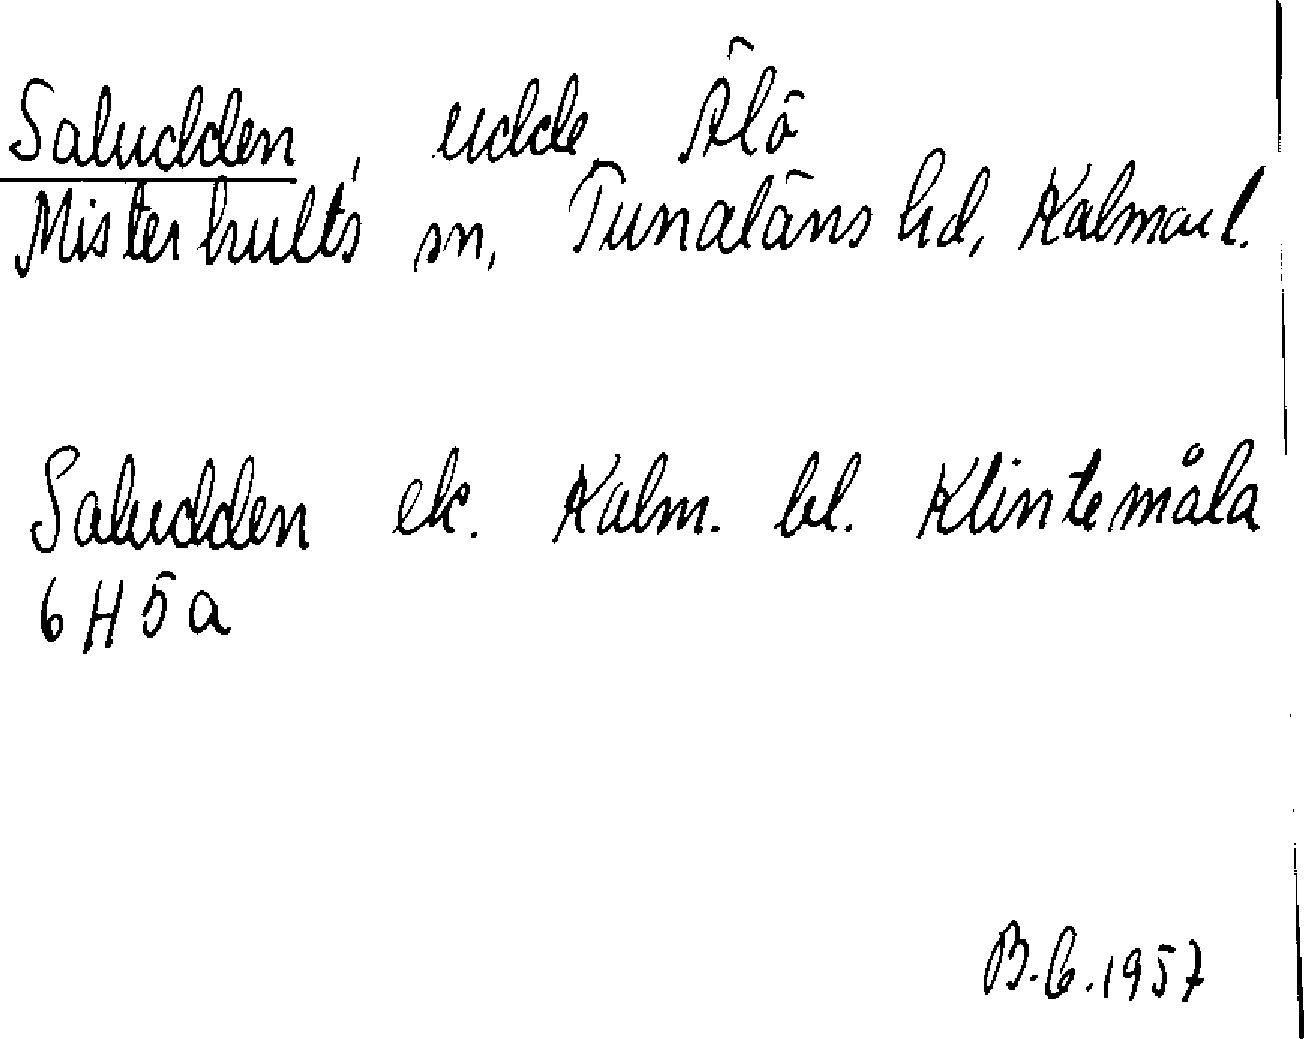 Saludden, udde Älö
Misterhults sn, Tunaläns hd, Kalmar l.
Saludden ek. Kalm. bl. Klintemåla
6H5a
B.G.1957